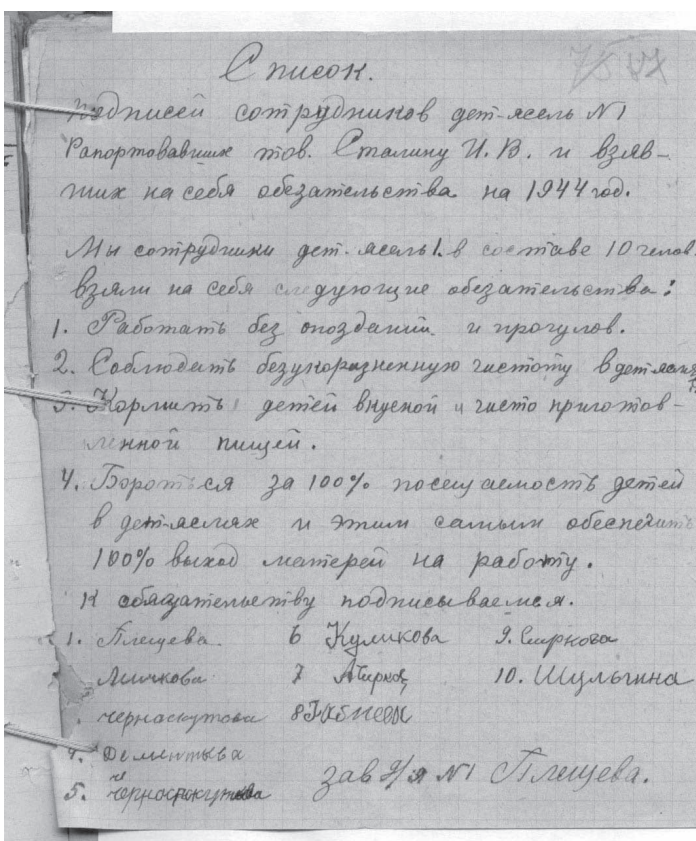 Список.
Подписей сотрудников дет-ясель N1
Рапортовавших тов. Сталину И.В. и взяв-
ших на себя обезательства на 1944 год.
Мы сотрудники дет-ясель 1. в составе 10 челов.
взяли на себя следующие обезательства:
1. Работать без опозданий и прогулов.
2. Соблюдать безукоризненную чистоту в дет-яслях
3. Кормить детей вкусной и чисто приготов-
ленной пищей.
4. Бороться за 100% посещаемость детей
в дет-яслях и этим самым обеспечить
100% выход матерей на работу.
К обязательству подписываемся.
1. Плещева 6 Куликова 9. Смирнова
Личкова 7 10. Шульгина
Черноскутова 8
4. Дементьва
5. Черноскутова зав д/я N1 Плещева.